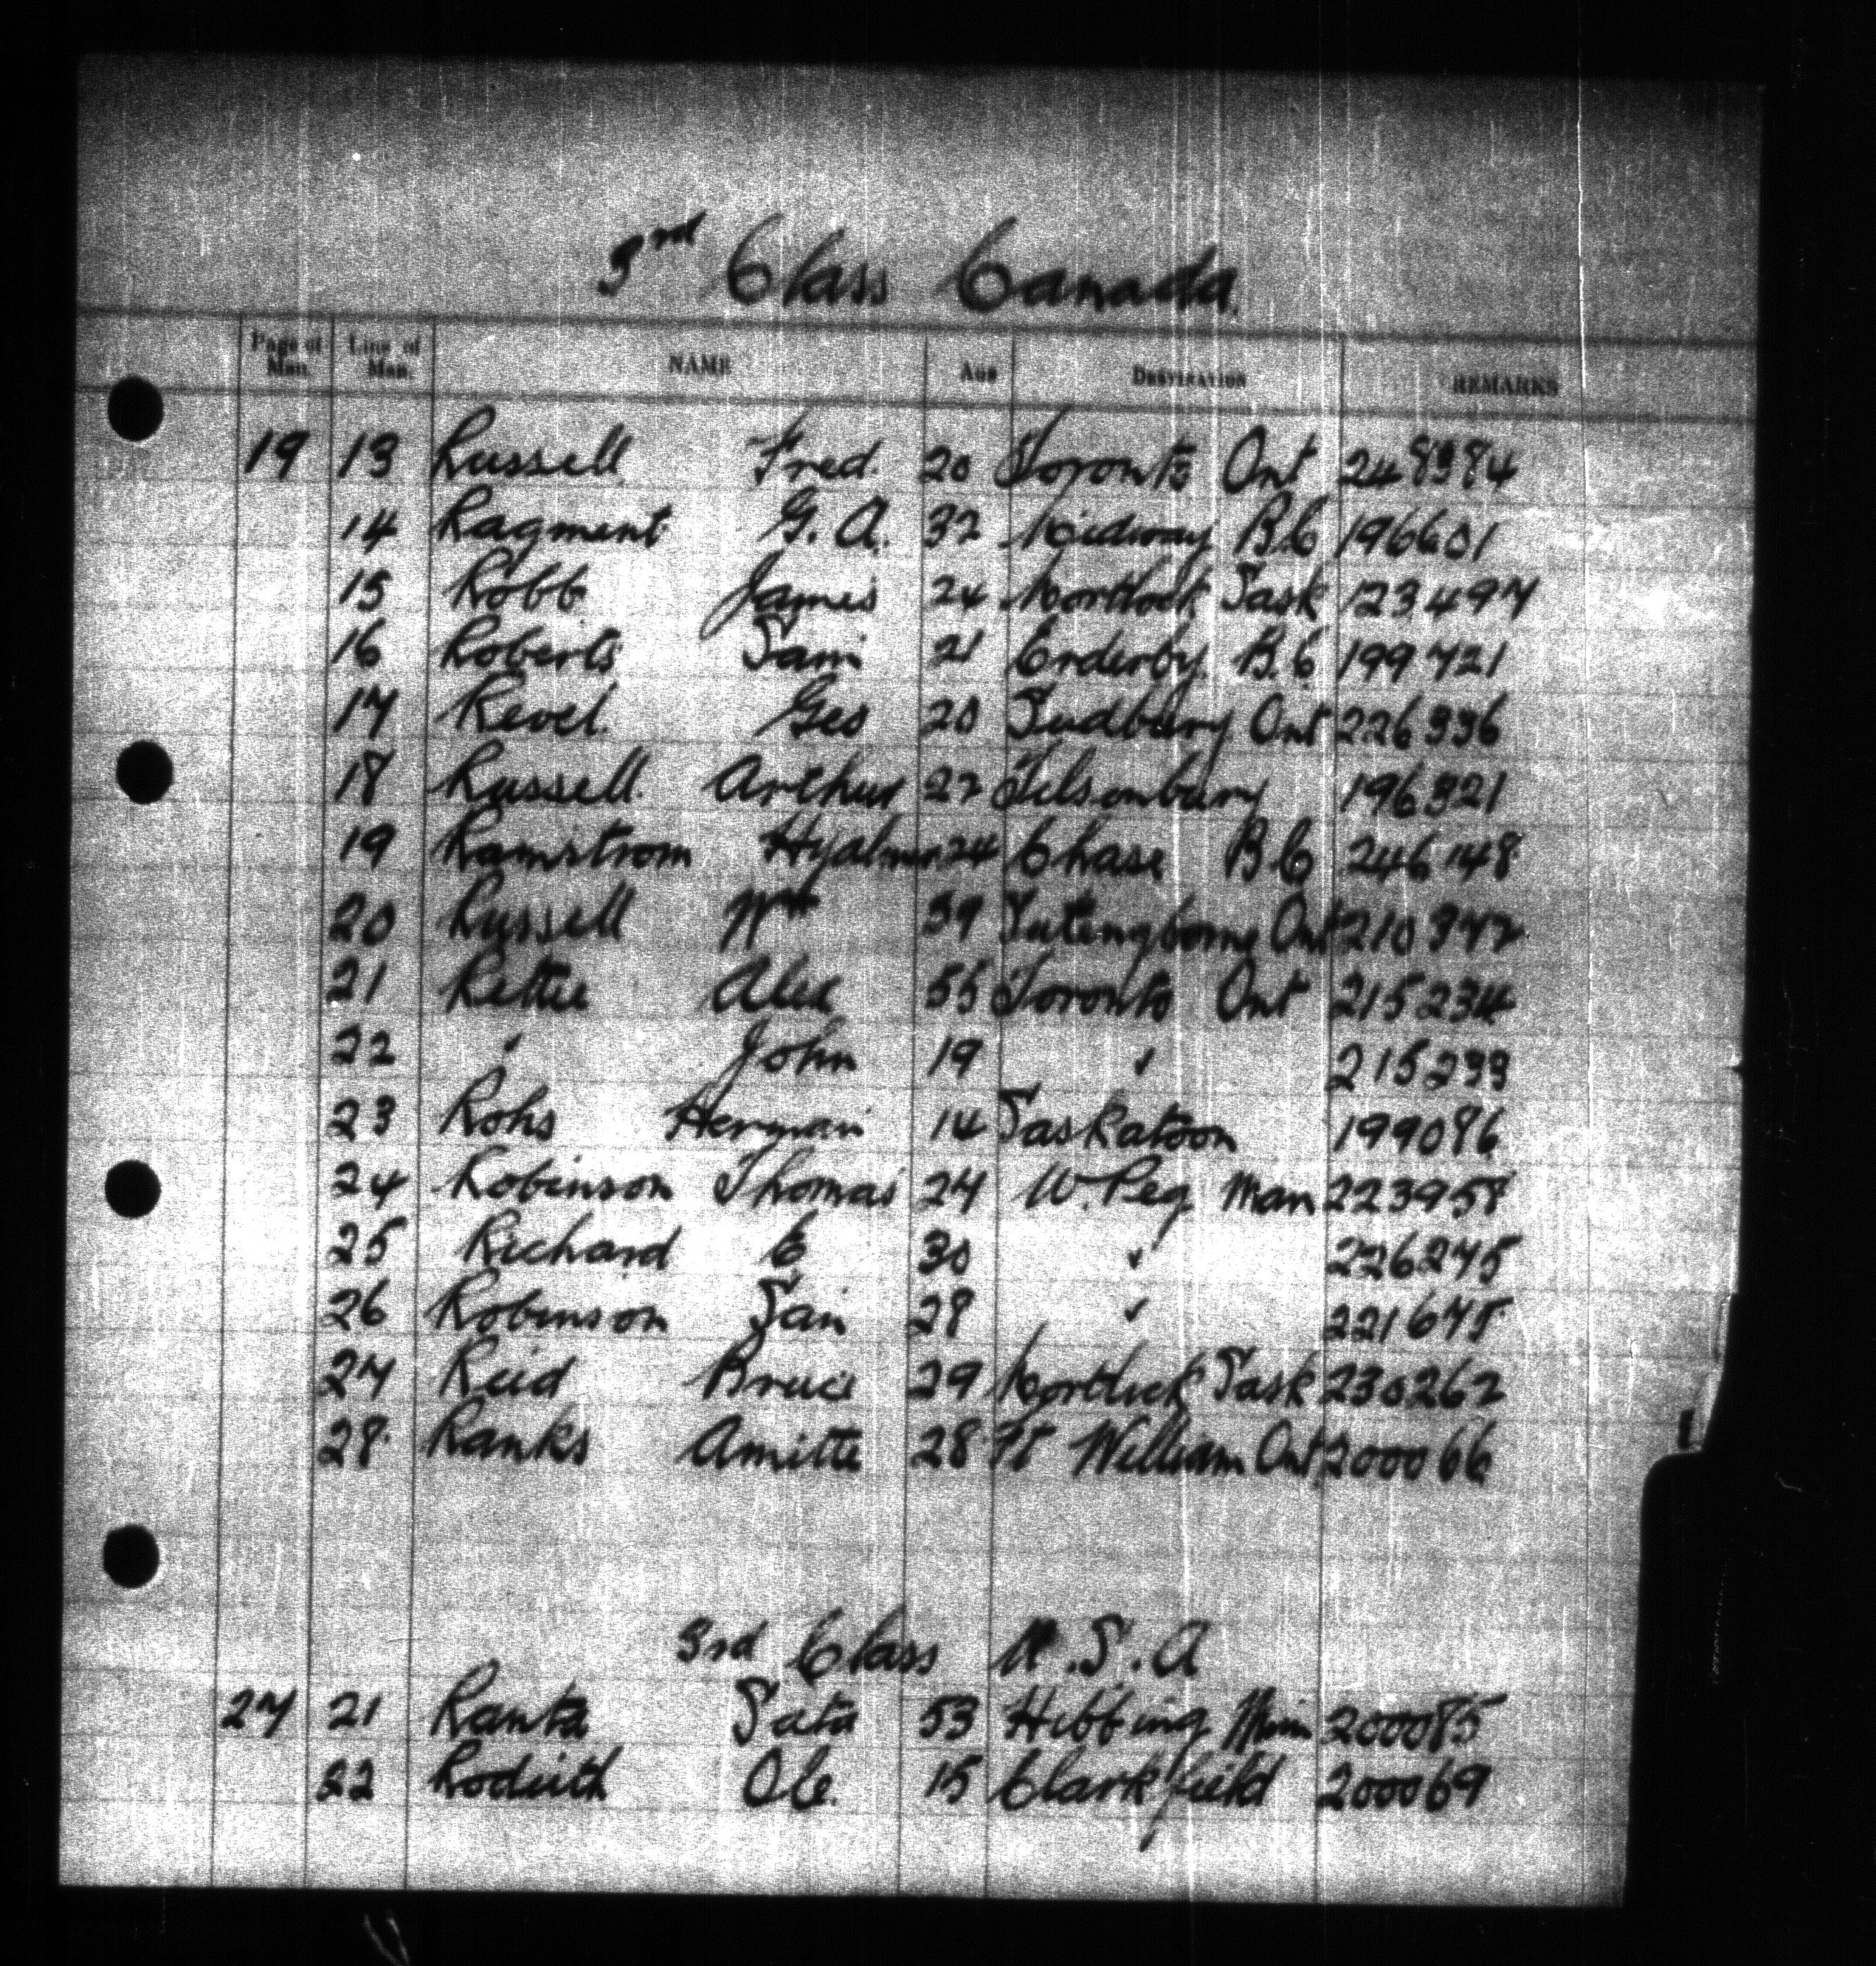 3rd Class Canada.
Page of Man. Line of Man. NAME Age DESTINATION REMARKS
19 13 Russell Fred. 20 Toronto Ont 248384
14 Ragment G. A. 32 Midway B.C 196601
15 Robb James 24 Mortlock Sask 123497
16 Roberts Sam 21 Enderby. B.C 199721
17 Revel. Geo 20 Sudbury Ont 226336
18 Russell. Arthur 22 Tilsonbury 196321
19 Ramstrom Hjalmar 24 Chase B C 246148
20 Russell Wm 39 Ont 210342
21 Rettie Alex 55 Toronto Ont 215234
22 " John 19 " 215233
23 Rohs Herman 14 Saskatoon 199086
24 Robinson Thomas 24 W. Peg. Man 223958
25 Richard E 30 " 226275
26 Robinson Sam 28 " 221675
27 Reid Bruce 29 Mortlock Sask 230262
28. Ranks Amitte 28 Ft William Ont 200066
3rd Class U.S.A
27 21 Ranta 53 Hibbing Minn 200085
22 Ole. 15 Clarkfield 200069